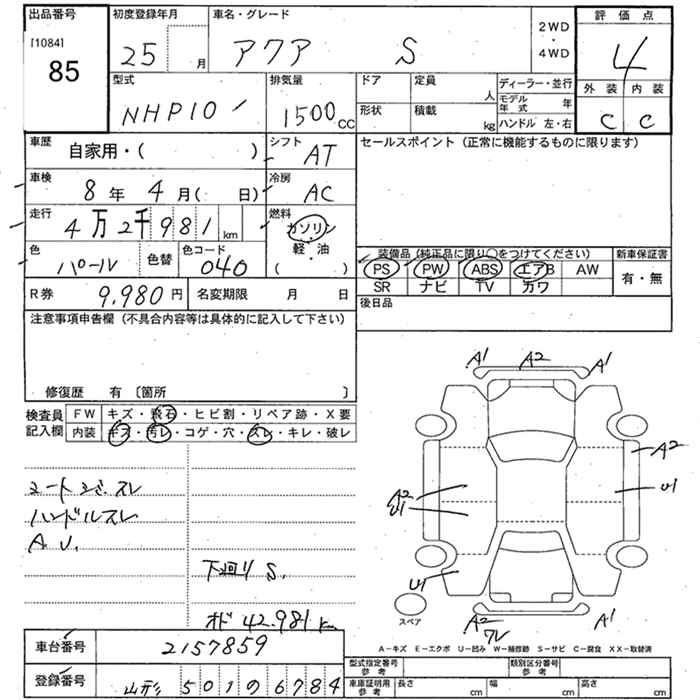 出品番号
[1084]
85
初度登録年月
25 月
車名・グレード
アクア S
2WD
・
4WD
評価点
4
外装 内装
C C
型式
NHP10
排気量
1500 CC
ドア
定員
人
形状
積載
kg
ディーラー・並行
モデル年式 年
ハンドル 左・右
車歴
自家用・( )
シフト
AT
車検
8年 4月( 日)
冷房
AC
走行
4万2千981km
燃料
ガソリン
軽・油
( )
色
パール
色替
色コード
040
R券
9.980円
名変期限 月 日
セールスポイント（正常に機能するものに限ります）
装備品（純正品に限り○をつけてください）
PS PW ABS エアB AW
SR ナビ TV カワ
新車保証書
有・無
後日品
注意事項申告欄（不具合内容等は具体的に記入して下さい）
修復歴 有〔箇所 〕
検査員記入欄
FW キズ・飛石・ヒビ割・リペア跡・X要
内装 キズ・汚レ・コゲ・穴・スレ・キレ・破レ
ハンドルスレ
A U.
下廻り S.
オド 42.981km
A1 A2 A1
A2
U1
A2
U1
U1
A2
A1
スペア
A-キズ E-エクボ U-凹み W-補修跡 S-サビ C-腐食 XX-取替済
車台番号
2157859
登録番号
山形 501 9 6784
型式指定番号
参考
類別区分番号
参考
車庫証明用
参考
長さ cm
幅 cm
高さ cm